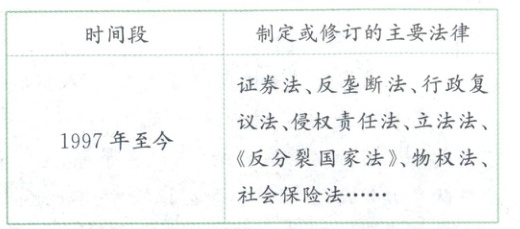 时间段
制定或修订的主要法律
1997年至今
证券法、反垄断法、行政复
议法、侵权责任法、立法法、
《反分裂国家法》、物权法、
社会保险法……